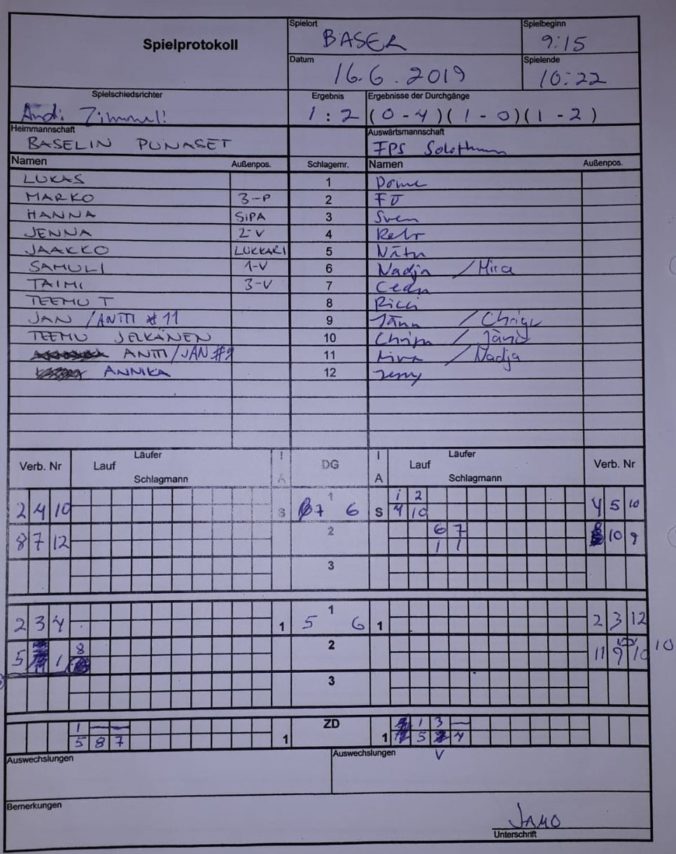 Spielprotokoll
Spielort
BASEL
Spielbeginn
9:15
Datum
16.6.2019
Spielende
10:22
Spielschiedsrichter
Ergebnis
Ergebnisse der Durchgänge
Andi Zimmeli
1 : 2 (0-4)(1-0)(1-2)
Heimmannschaft
Auswärtsmannschaft
BASELIN PUNASET
FPS Solothurn
Namen Außenpos. Schlagernr. Namen Außenpos.
LUKAS 1
MARKO 3-P 2 FÜ
HANNA SIPA 3 Sven
JENNA 2-V 4 Reto
JAAKKO LUKKARI 5
SAMULI 1-V 6 Nadja / Mira
TAIMI 3-V 7
TEEMU T 8 Ricci
JAN / ANTTI #11 9
TEEMU JELKÄNEN 10
ANTTI/JAN #9 11 / Nadja
ANNIKA 12
Läufer I DG I Läufer
Verb. Nr Lauf Lauf Verb. Nr
Schlagmann A A Schlagmann
1 1 2
2 4 10 S 7 6 S 4 10 4 5 10
8 7 12 2 6 7 10 9
1 1
3
1
2 3 4 1 5 6 1 2 3 12
8
5 1 2 11 9 10 10
3
1 ZD 1 3
5 8 7 1 1 5 4
Auswechslungen
Auswechslungen
V
Bemerkungen
JAMO
Unterschrift